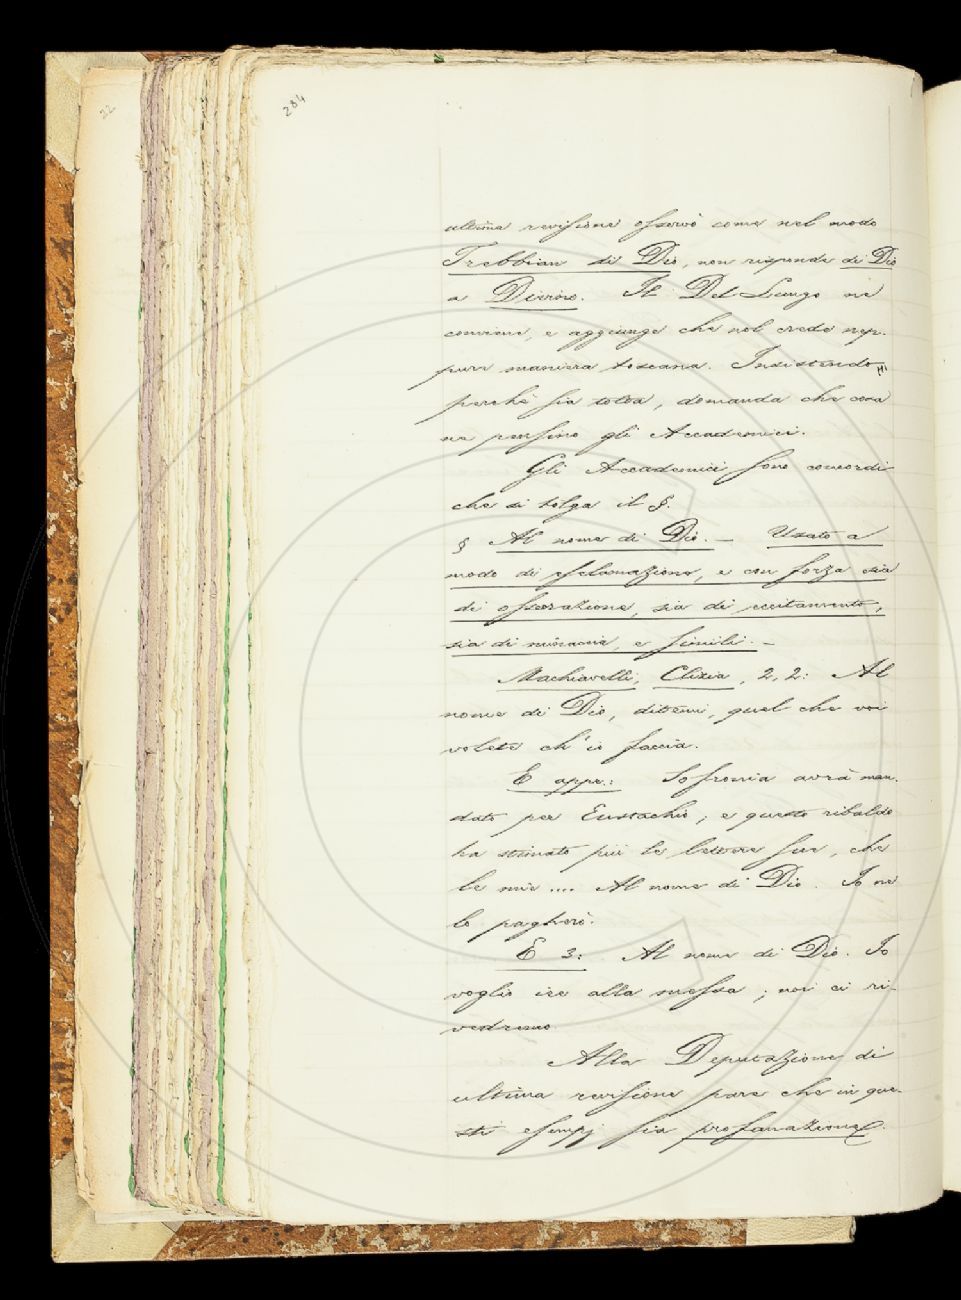 22
284
ultima revisione osservò come nel modo
Trebbian di Dio, non risponde di Dio
a Divino. Il Del Lungo ne
conviene, e aggiunge che nol crede nep-
pure maniera toscana. Insistendo
perchè sia tolta, domanda che cosa
ne pensino gli Accademici.
Gli Accademici sono concordi
che si tolga il §.
§ Al nome di Dio. — Usato a
modo di esclamazione, e con forza sia
di osservazione, sia di eccitamento,
sia di minaccia, e simili. —
Machiavelli, Clizia, 2, 2: Al
nome di Dio, ditemi, quel che voi
volete ch'io faccia.
E appr.: Sofronia avrà man-
dato per Eustachio; e questo ribaldo
ha stimato più le lettere sue, che
le mie .... Al nome di Dio. Io ne
lo pagherò.
E 3: Al nome di Dio. Io
voglio ire alla messa; noi ci ri-
vedremo
Alla Deputazione di
ultima revisione pare che in que-
sti esempj sia profanazione.